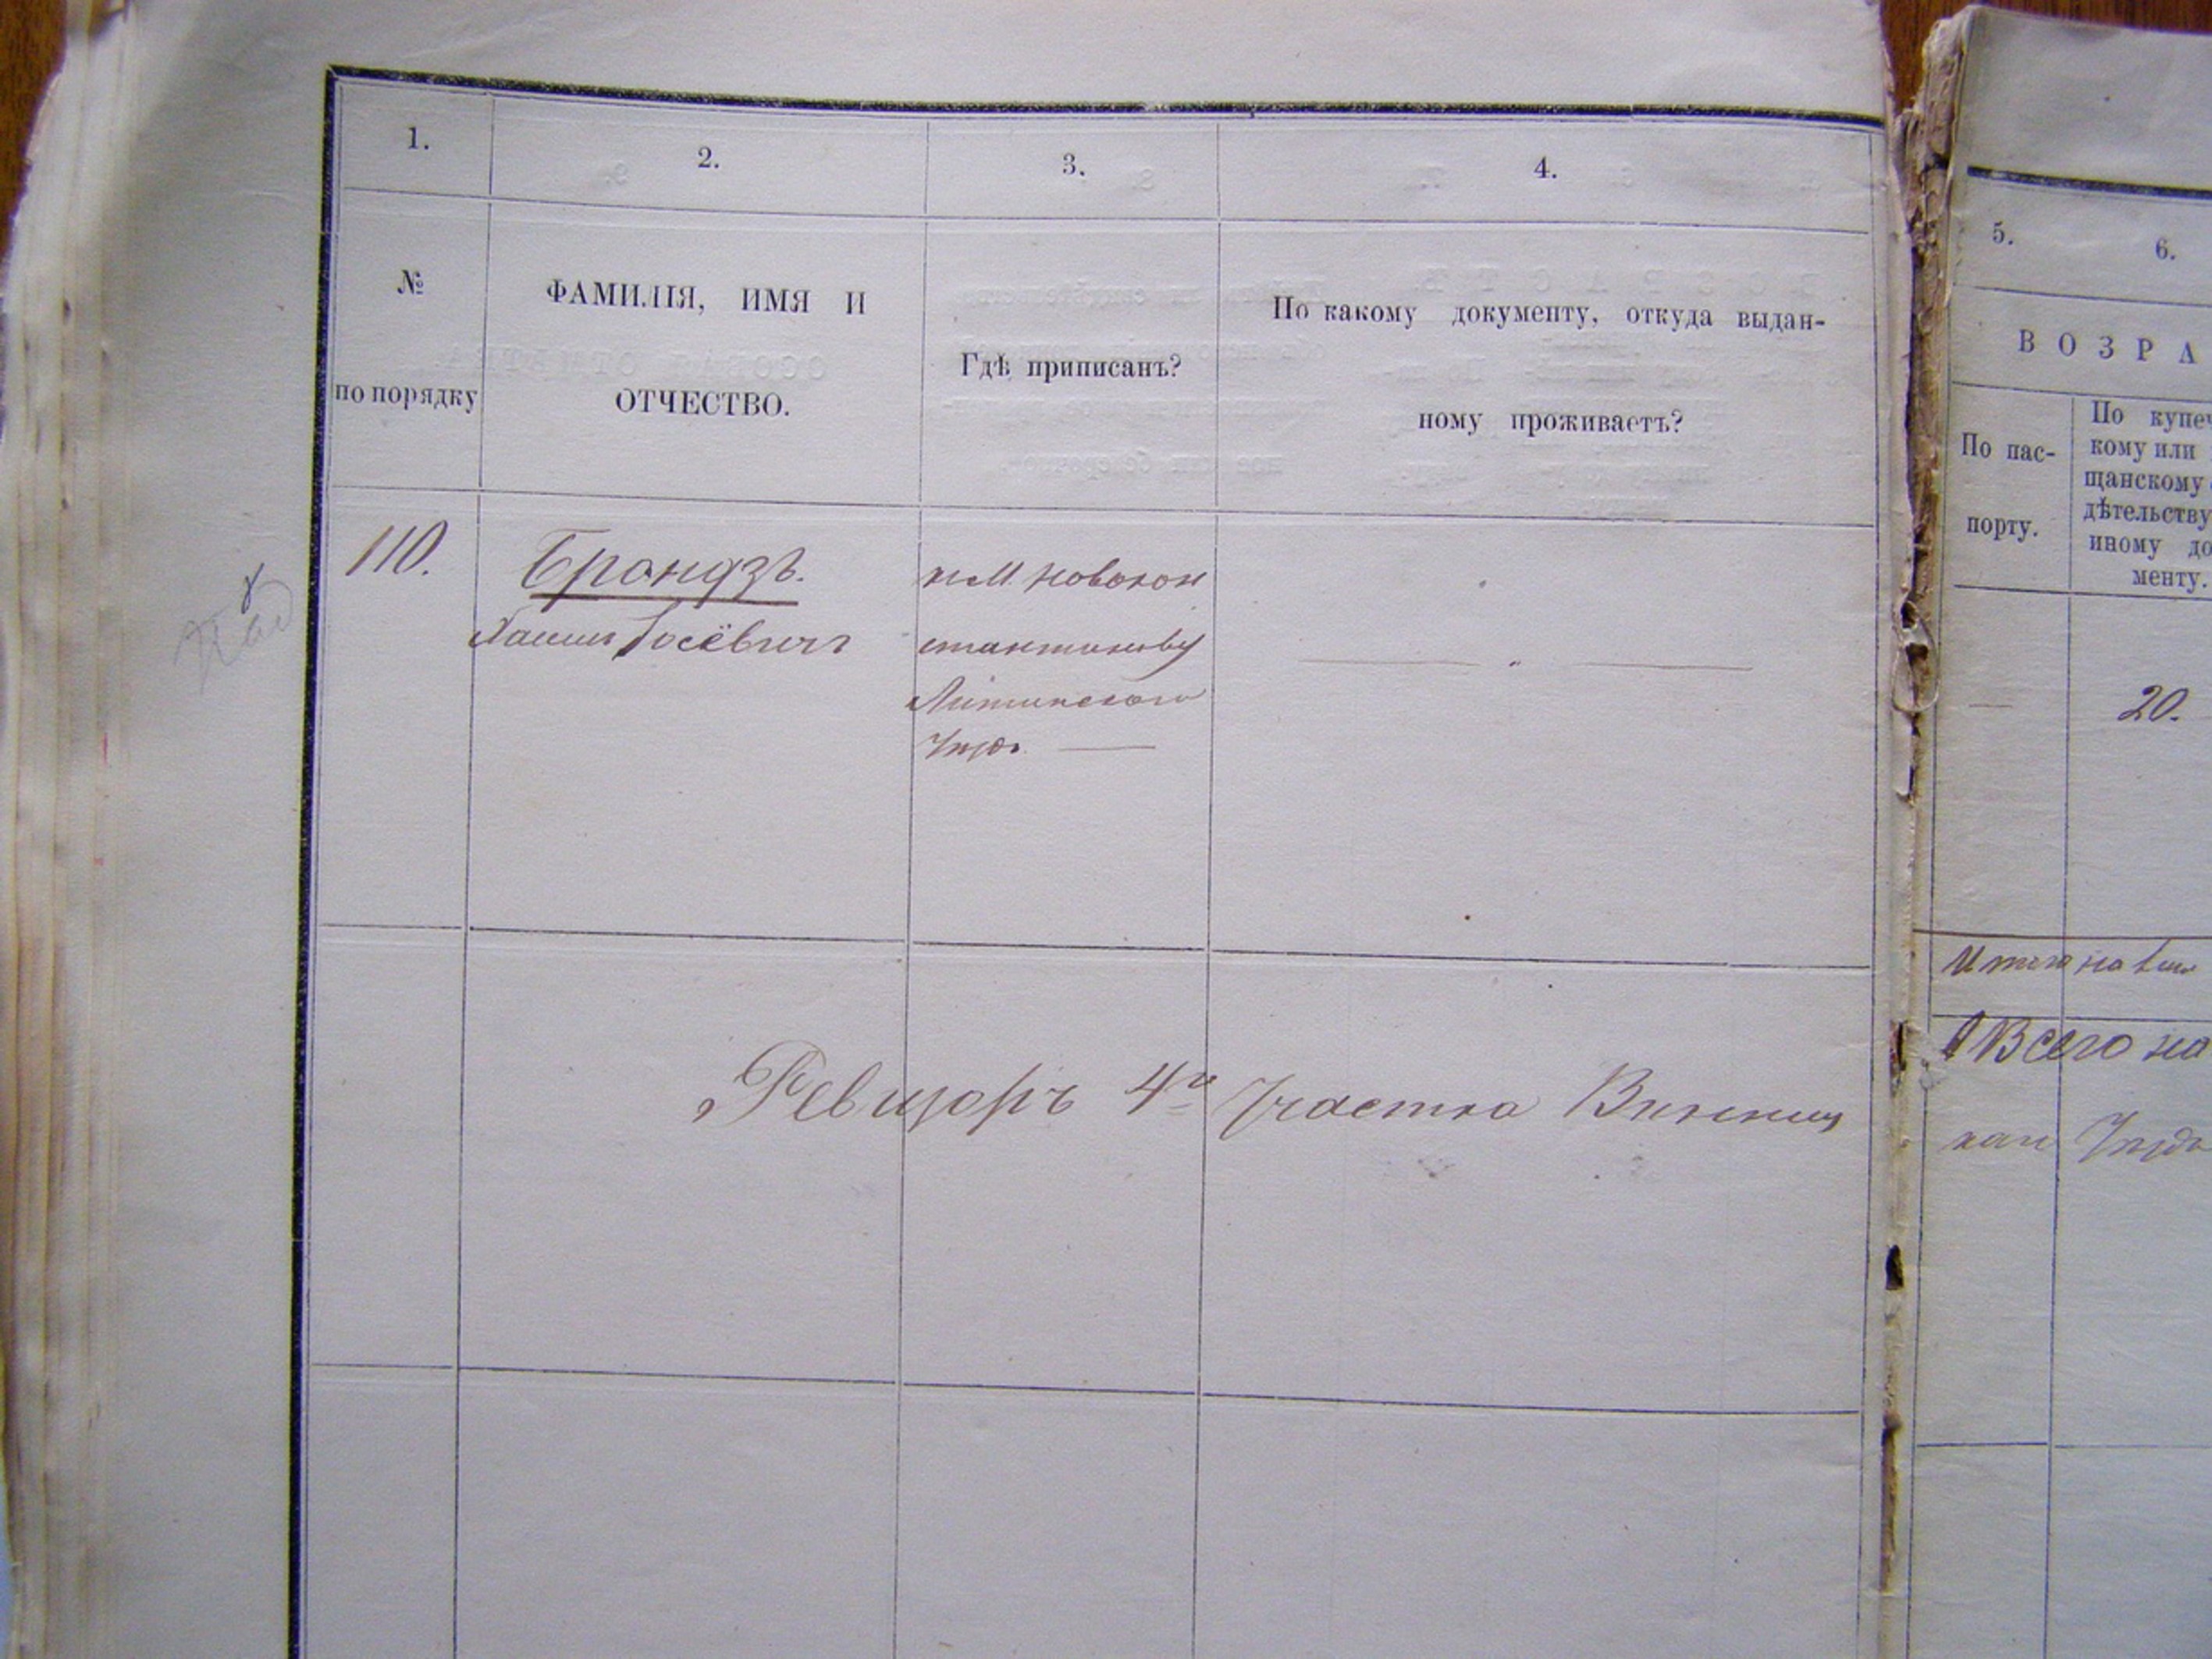 1.
2.
3.
4.
№
по порядку
ФАМИЛІЯ, ИМЯ И
ОТЧЕСТВО.
Гдѣ приписанъ?
По какому документу, откуда выдан-
ному проживаетъ?
110.
Брондзъ.
Іосёвичъ
к М. Новокон
стантинову
Литинского
Уѣзда.
Ревизоръ 4го Участка Винниц
5.
6.
ВОЗРА
По пас-
порту.
По купеч
кому или
щанскому
дѣтельству
иному до
менту.
20.
Итого на
Всего на
каго Уѣзда